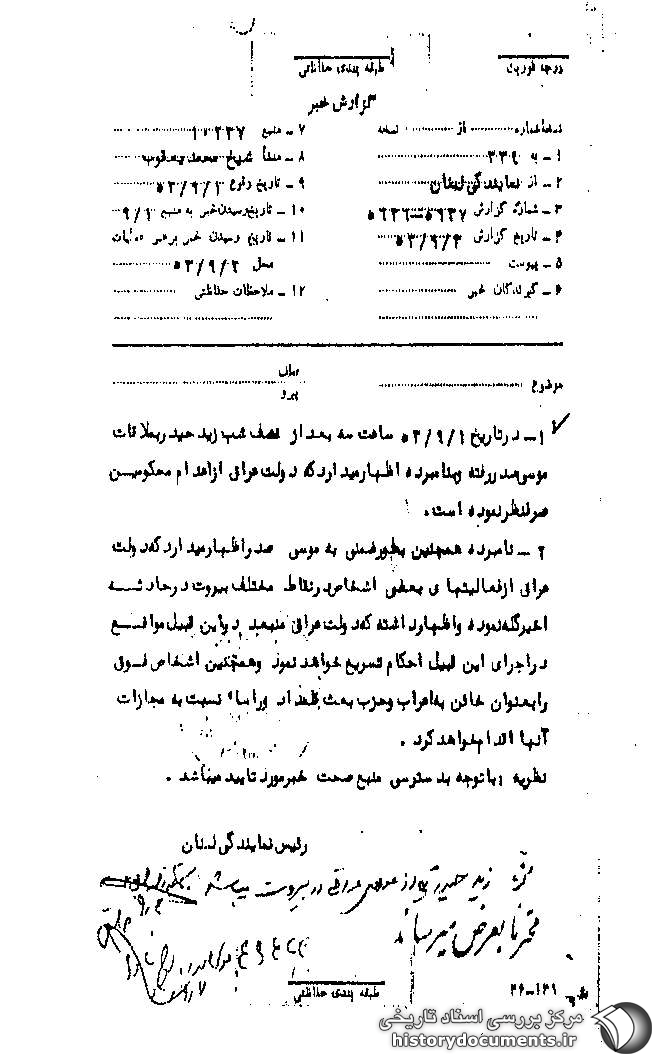 درجه فوریت
طبقه بندی حفاظتی
گزارش خبر
نسخه شماره از نسخه
۱ - به ۳۳۱
۲ - از نمایندگی لبنان
۳ - شماره گزارش ۵۶۳۷-۵۶۳۶
۴ - تاریخ گزارش ۵۳/۹/۲
۵ - پیوست
۶ - گیرندگان خبر
۷ - منبع ۱۰۲۳۷
۸ - منشأ شیخ محمد یعقوب
۹ - تاریخ وقوع ۵۳/۹/۱
۱۰ - تاریخ رسیدن خبر به منبع ۹/۱
۱۱ - تاریخ رسیدن خبر برهبر عملیات
محل ۵۳/۹/۲
۱۲ - ملاحظات حفاظتی
موضوع
عطف
پیرو
۱- در تاریخ ۵۳/۹/۱ ساعت سه بعد از نصف شب زید حیدر بملاقات
موسی صدر رفته و بنامبرده اظهار میدارد که دولت عراق از اعدام محکومین
صرفنظر نموده است.
۲- نامبرده همچنین بطور ضمنی به موسی صدر اظهار میدارد که دولت
عراق از فعالیتهای بعضی اشخاص در نقاط مختلف بیروت در حادثه
اخیر گله نموده و اظهار داشته که دولت عراق منبعد در این قبیل مواقع
در اجرای این قبیل احکام تسریع خواهد نمود و همچنین اشخاص فوق
را بعنوان خائن به اعراب و حزب بعث قلمداد و راسا" نسبت به مجازات
آنها اقدام خواهد کرد.
نظریه : با توجه بدسترسی منبع صحت خبر مورد تایید میباشد.
رئیس نمایندگی لبنان
زید حیدر از عوامل عراقی در بیروت میباشد
محترماً بعرض میرساند
طبقه بندی حفاظتی
۲۶-۱۳۱
مرکز بررسی اسناد تاریخی
historydocuments.ir